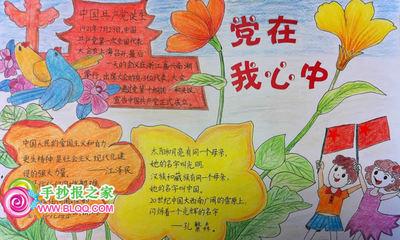 中国共产党诞生
1921年7月23日,中国
共产党第一次全国代表
大会在上海召开,最后
一天的会议在浙江嘉兴南湖
举行,出席大会的有13位代表,大会
通过党第十纲领和决议,
宣告中国共产党正式成立。
党在
我心中
中国人民的爱国主义和奋力
更生精神是社会主义现代化建
设的强大力量。
江泽民
太阳和月亮有同一个母亲,
她的名字叫光明,
汉族和藏族有同一个母亲,
她的名字叫中国。
20世纪中国大西南广阔的雪原上,
闪烁着一个光辉的名字
——孔繁森。
手抄报之家
www.BLQQ.com